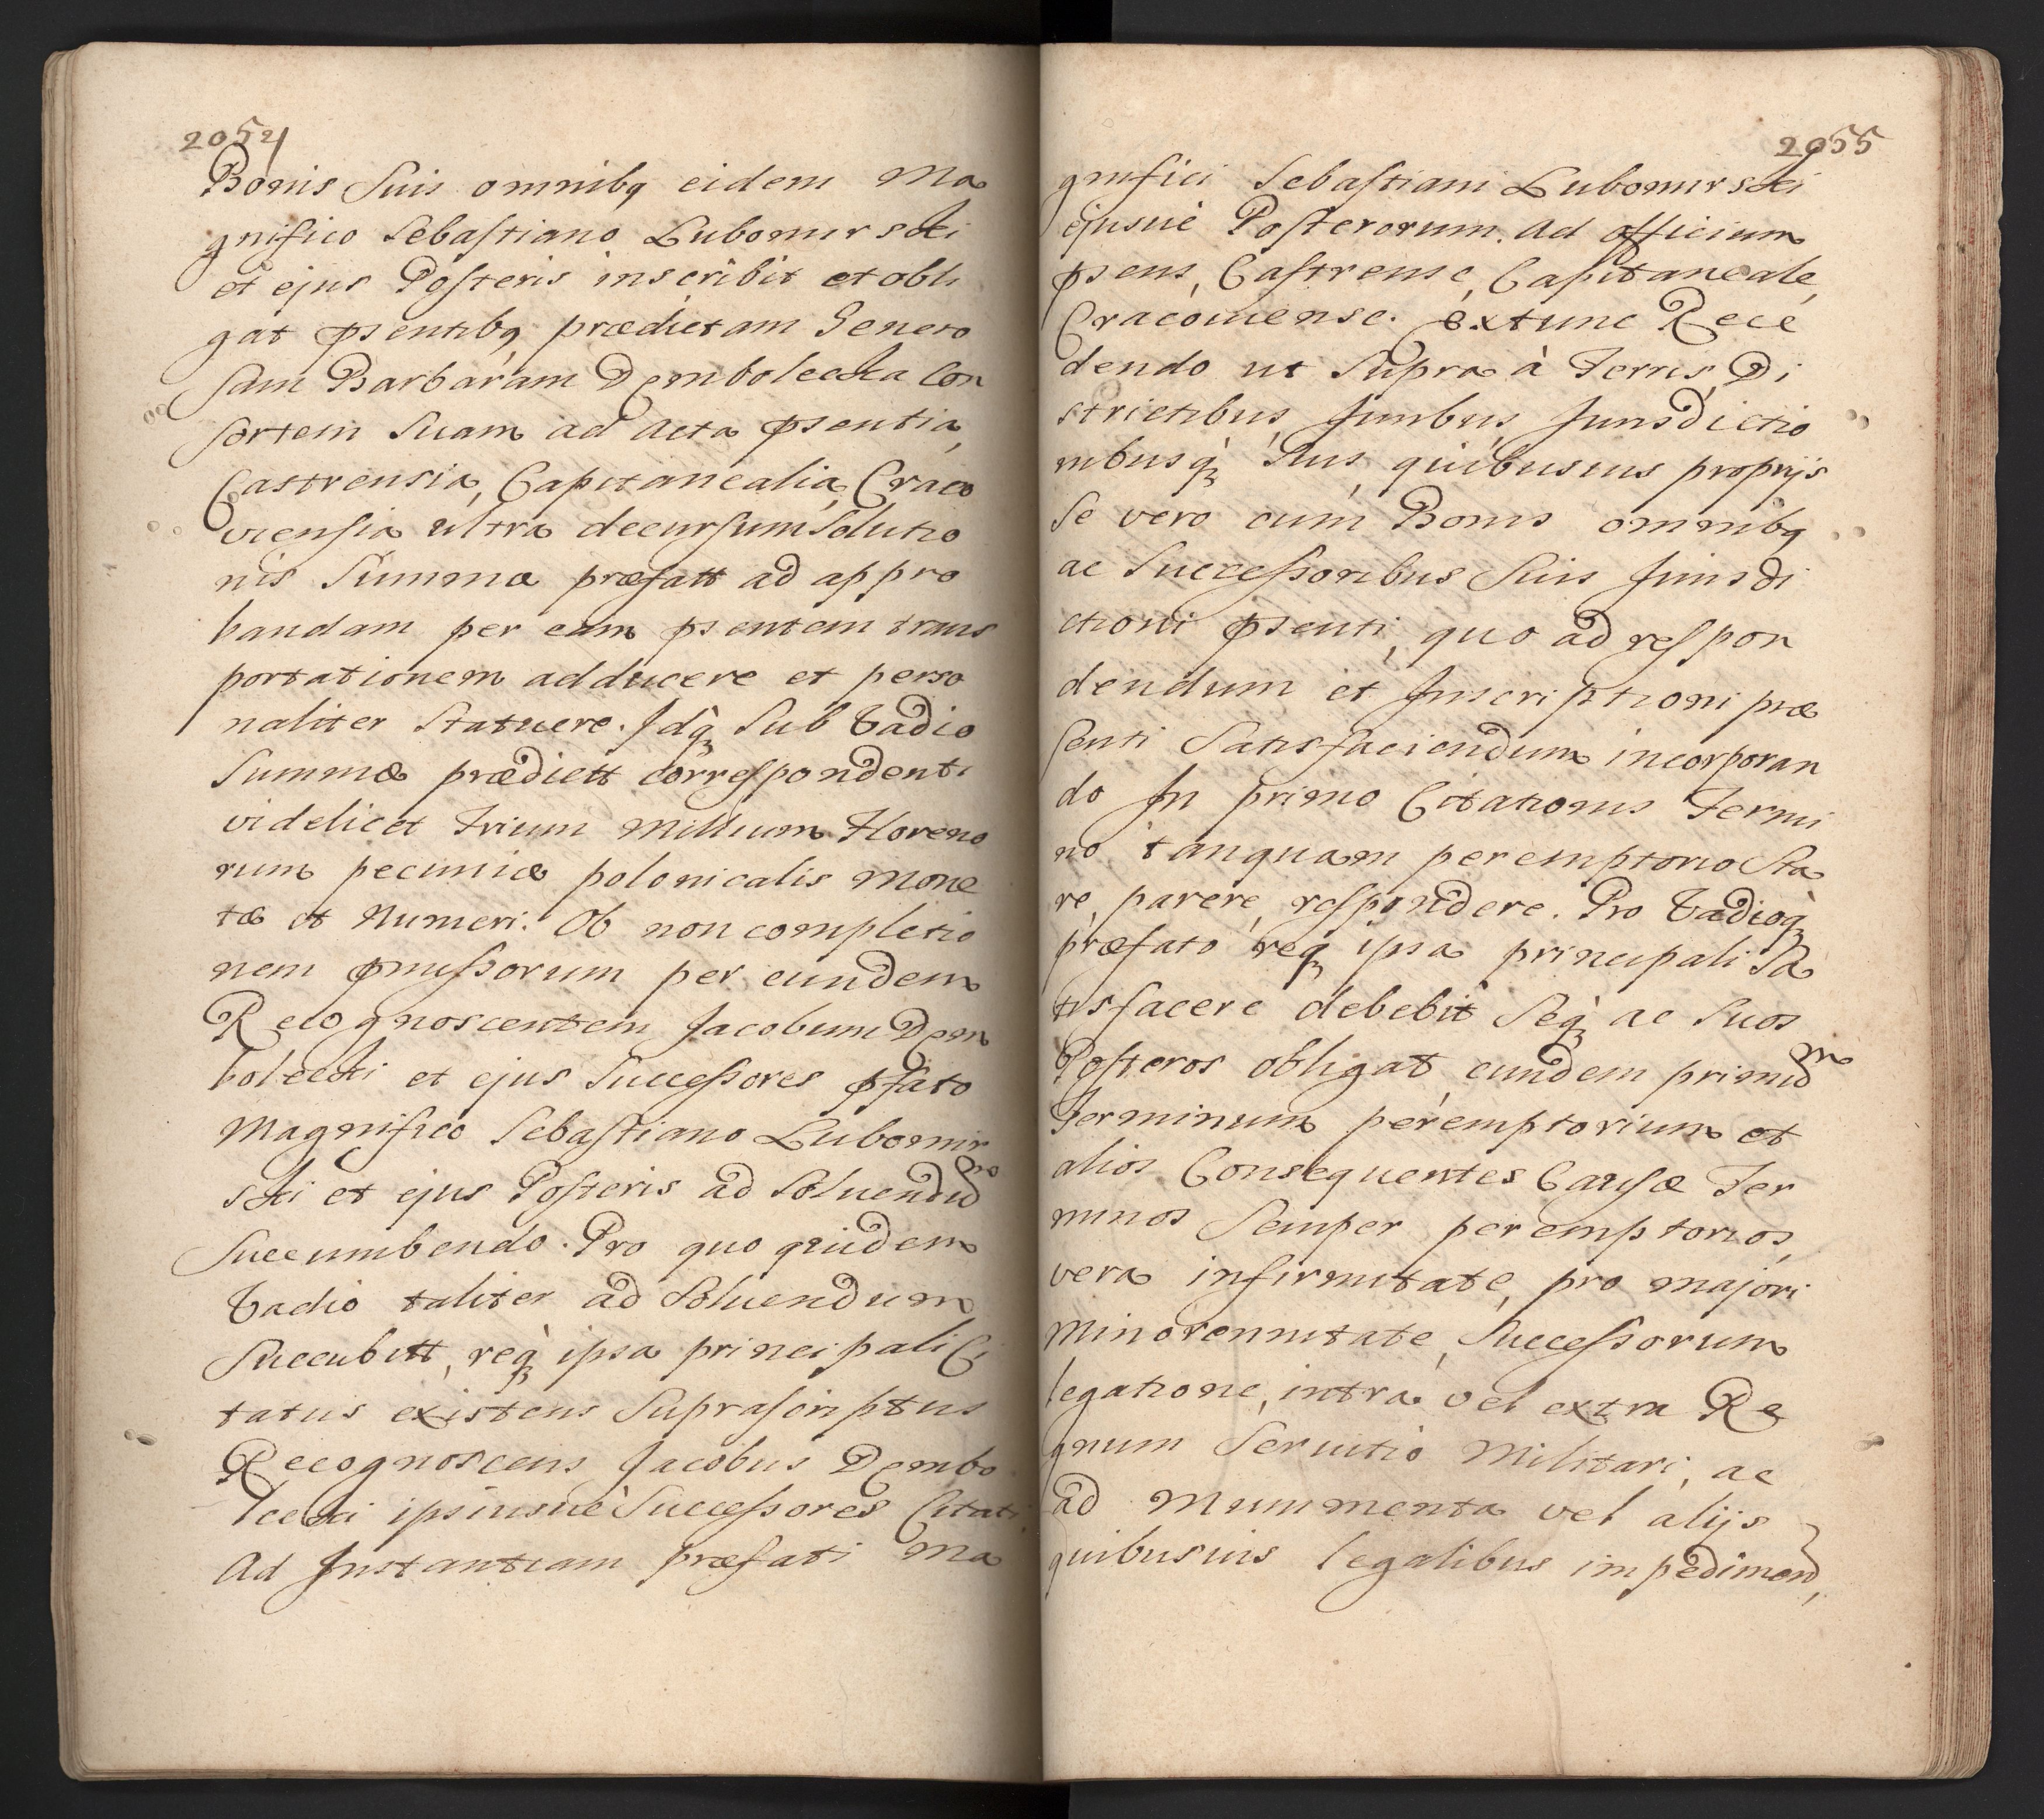 2054
Bonis Suis omnibq eidem Ma
gnifico Sebastiano Lubomirski
et ejus Posteris inscribit et obli
gat psentibq prædictam Genero
sam Barbaram Dembolecka Con
sortem Suam ad Acta psentia,
Castrensia, Capitanealia, Craco
viensia ultra decursum Solutio
nis Summæ præfatt ad appro
bandam per eam psentem trans
portationem adducere et perso
naliter Statuere. Idq Sub Vadio
Summæ prædictt correspondenti
videlicet Trium Millium Floreno
rum pecuniæ polonicalis mone
tæ et Numeri. Ob non completio
nem pmissorum per eundem
Recognoscentem Jacobum Dem
bolecki et ejus Successores pfato
Magnifico Sebastiano Lubomir
ski et ejus Posteris ad Soluendum
Succumbendo. Pro quo quidem
Vadio taliter ad Soluendum
Succubitt, req ipsa principali Ci
tatus existens Suprascriptus
Recognoscens Jacobus Dembo
lecki ipsiusuè Successores Citati
Ad Instantiam præfati Ma
2055
gnifici Sebastiani Lubomirski
ejusuè Posterorum. Ad officium
psens, Castrense, Capitaneale,
Cracouiense. extunc Rece
dendo ut Supra à Terris, Di
strictibus, Juribus, Jurisdictio
nibusq Suis, quibusuis proprijs
Se vero cum Bonis omnibq
ac Successoribus Suis Jurisdi
ctioni psenti, quo ad respon
dendum et Inscriptioni præ
senti Satisfaciendum incorporan
do In primo Citationis Termi
no tanquam peremptorio Sta
re, parere, respondere. Pro Vadioq
præfato req ipsa principali Sa
tisfacere debebit Seq ac Suos
Posteros obligat eundem primum
Terminum peremptorium et
alios Consequentes Causæ Ter
minos Semper peremptorios,
vera infirmitate, pro majori
Minorennitate, Successorum
legatione, intra vel extra Re
gnum Seruitio Militari, ac
ad Munimenta vel alijs
quibusuis legalibus impedimen,